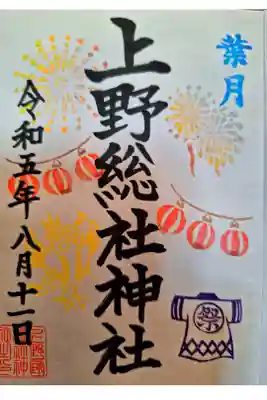 葉月
上野総社神社
令和五年八月十一日
祭